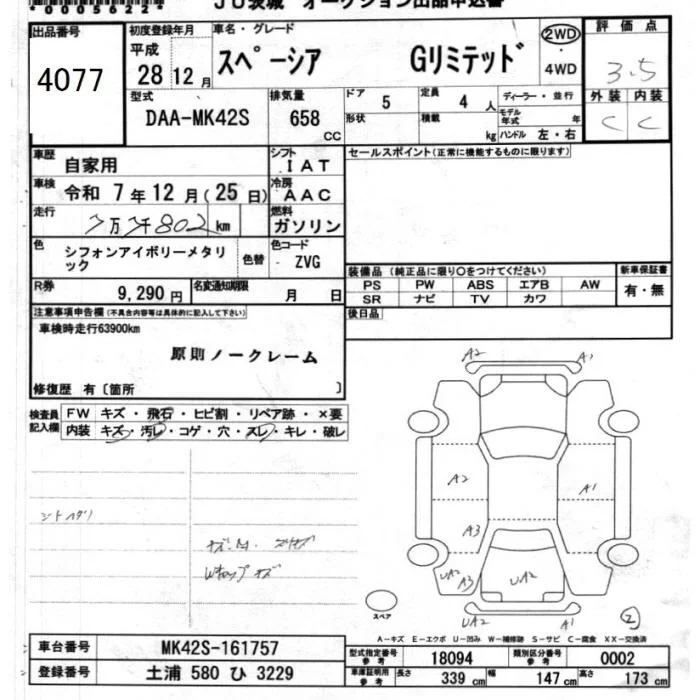 *00056220*
JU茨城 オークション出品申込書
出品番号 4077
初度登録年月 平成 28 12 月
車名・グレード スペーシア Gリミテッド
2WD ・ 4WD
評価点 3.5
外装 内装
C C
型式 DAA-MK42S
排気量 658 CC
ドア 5
定員 4 人
ディーラー・並行
形状 積載 kg
モデル年式 年
ハンドル 左・右
車歴 自家用
シフト IAT
セールスポイント(正常に機能するものに限ります)
車検 令和 7 年 12 月 (25 日)
冷房 AAC
走行 802 km
燃料 ガソリン
色 シフォンアイボリーメタリック
色替
色コード ZVG
装備品 (純正品に限り○をつけてください)
PS PW ABS エアB AW
SR ナビ TV カワ
新車保証書 有・無
R券 9,290 円
名変通知期限 月 日
後日品
注意事項申告欄 (不具合内容等は具体的に記入して下さい)
車検時走行63900km
原則ノークレーム
修復歴 有〔箇所 〕
検査員記入欄
FW キズ・飛石・ヒビ割・リペア跡・×要
内装 キズ・汚レ・コゲ・穴・スレ・キレ・破レ
A2 A1
A2 A1
A3
UA2 A3 UA2
UA2 A1
スペア
②
A-キズ E-エクボ U-凹み W-補修跡 S-サビ C-腐食 XX-交換済
車台番号 MK42S-161757
登録番号 土浦 580 ひ 3229
型式指定番号 参考 18094
類別区分番号 参考 0002
車庫証明用 参考 長さ 339 cm 幅 147 cm 高さ 173 cm